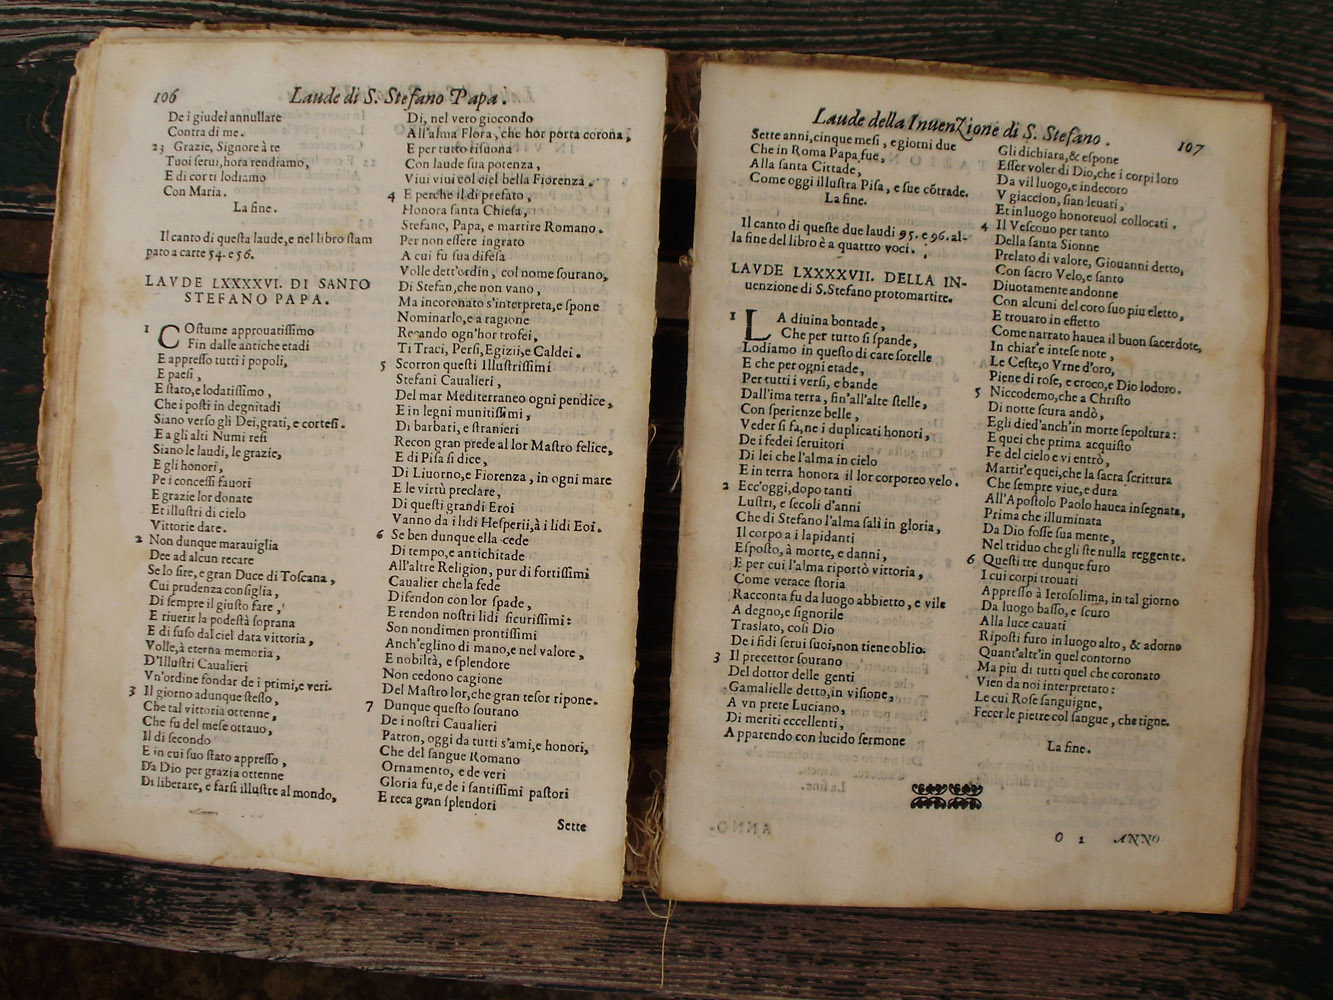 106
Laude di S. Stefano Papa.
De i giudei annullare
Contra di me.
23 Grazie, Signore à te
Tuoi serui, hora rendiamo,
E di cor ti lodiamo
Con Maria.
La fine.
Il canto di questa laude, e nel libro stam
pato a carte 54. e 56.
LAVDE LXXXXVI. DI SANTO
STEFANO PAPA.
1 COstume approuatissimo
Fin dalle antiche etadi
E appresso tutti i popoli,
E paesi,
E stato, e lodatissimo,
Che i posti in degnitadi
Siano verso gli Dei, grati, e cortesi.
E a gli alti Numi resi
Siano le laudi, le grazie,
E gli honori,
Pe i concessi fauori
E grazie lor donate
Et illustri di cielo
Vittorie date.
2 Non dunque marauiglia
Dee ad alcun recare
Se lo sire, e gran Duce di Toscana,
Cui prudenza consiglia,
Di sempre il giusto fare,
E riuerir la podestà soprana
E di suso dal ciel data vittoria,
Volle, à eterna memoria,
D'Illustri Caualieri
Vn'ordine fondar de i primi, e veri.
3 Il giorno adunque stesso,
Che tal vittoria ottenne,
Che fu del mese ottauo,
Il di secondo
E in cui suo stato appresso,
Da Dio per grazia ottenne
Di liberare, e farsi illustre al mondo,
Di, nel vero giocondo
All'alma Flora, che hor porta corona,
E per tutto risuona
Con laude sua potenza,
Viui viui col ciel bella Fiorenza.
4 E perche il di prefato,
Honora santa Chiesa,
Stefano, Papa, e martire Romano.
Per non essere ingrato
A cui fu sua difesa
Volle dett'ordin, col nome sourano,
Di Stefan, che non vano,
Ma incoronato s'interpreta, e spone
Nominarlo, e a ragione
Recando ogn'hor trofei,
Ti Traci, Persi, Egizii, e Caldei.
5 Scorron questi Illustrissimi
Stefani Caualieri,
Del mar Mediterraneo ogni pendice,
E in legni munitissimi,
Di barbari, e stranieri
Recon gran prede al lor Mastro felice,
E di Pisa si dice,
Di Liuorno, e Fiorenza, in ogni mare
E le virtù preclare,
Di questi grandi Eroi
Vanno da i lidi Hesperii, à i lidi Eoi.
6 Se ben dunque ella cede
Di tempo, e antichitade
All'altre Religion, pur di fortissimi
Caualier che la fede
Difendon con lor spade,
E rendon nostri lidi sicurissimi:
Son nondimen prontissimi
Anch'eglino di mano, e nel valore,
E nobiltà, e splendore
Non cedono cagione
Del Mastro lor, che gran tesor ripone.
7 Dunque questo sourano
De i nostri Caualieri
Patron, oggi da tutti s'ami, e honori,
Che del sangue Romano
Ornamento, e de veri
Gloria fu, e de i santissimi pastori
E reca gran splendori
Sette
Laude della Inuenzione di S. Stefano.
107
Sette anni, cinque mesi, e giorni due
Che in Roma Papa fue,
Alla santa Cittade,
Come oggi illustra Pisa, e sue cōtrade.
La fine.
Il canto di queste due laudi 95. e 96. al-
la fine del libro è a quattro voci.
LAVDE LXXXXVII. DELLA IN-
uenzione di S. Stefano protomartire.
1 LA diuina bontade,
Che per tutto si spande,
Lodiamo in questo di care sorelle
E che per ogni etade,
Per tutti i versi, e bande
Dall'ima terra, fin'all'alte stelle,
Con sperienze belle,
Veder si fa, ne i duplicati honori,
De i fedei seruitori
Di lei che l'alma in cielo
E in terra honora il lor corporeo velo.
2 Ecc'oggi, dopo tanti
Lustri, e secoli d'anni
Che di Stefano l'alma sali in gloria,
Il corpo a i lapidanti
Esposto, à morte, e danni,
E per cui l'alma riportò vittoria,
Come verace storia
Racconta fu da luogo abbietto, e vile
A degno, e signorile
Traslato, così Dio
De i fidi serui suoi, non tiene oblio.
3 Il precettor sourano
Del dottor delle genti
Gamalielle detto, in visione,
A vn prete Luciano,
Di meriti eccellenti,
Apparendo con lucido sermone
Gli dichiara, & espone
Esser voler di Dio, che i corpi loro
Da vil luogo, e indecoro
V giaccion, sian leuati,
Et in luogo honoreuol collocati.
4 Il Vescouo per tanto
Della santa Sionne
Prelato di valore, Giouanni detto,
Con sacro Velo, e santo
Diuotamente andonne
Con alcuni del coro suo piu eletto,
E trouaro in effetto
Come narrato hauea il buon sacerdote,
In chiar'e intese note,
Le Ceste, o Vrne d'oro,
Piene di rose, e croco, e Dio lodoro.
5 Niccodemo, che a Christo
Di notte scura andò,
Egli died'anch'in morte sepoltura:
E quei che prima acquisto
Fe del cielo e vi entrò,
Martir'e quei, che la sacra scrittura
Che sempre viue, e dura
All'Apostolo Paolo hauea insegnata,
Prima che illuminata
Da Dio fosse sua mente,
Nel triduo che gli ste nulla reggente.
6 Questi tre dunque furo
I cui corpi trouati
Appresso à Ierosolima, in tal giorno
Da luogo basso, e scuro
Alla luce cauati
Riposti furo in luogo alto, & adorno
Quant'altr'in quel contorno
Ma piu di tutti quel che coronato
Vien da noi interpretato:
Le cui Rose sanguigne,
Fecer le pietre col sangue, che tigne.
La fine.
O 2 ANNO